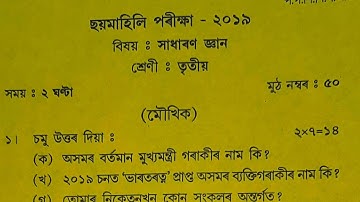 ছয়মাহিলি পৰীক্ষা - ২০১৯
বিষয় : সাধাৰণ জ্ঞান
শ্ৰেণী : তৃতীয়
সময় : ২ ঘণ্টা মুঠ নম্বৰ : ৫০
(মৌখিক)
১। চমু উত্তৰ দিয়া : ২×৭=১৪
(ক) অসমৰ বৰ্তমান মুখ্যমন্ত্ৰী গৰাকীৰ নাম কি?
(খ) ২০১৯ চনত 'ভাৰতৰত্ন' প্ৰাপ্ত অসমৰ ব্যক্তিগৰাকীৰ নাম কি?
(গ) তোমাৰ নিকেতনখন কোন সংকুলৰ অন্তৰ্গত?